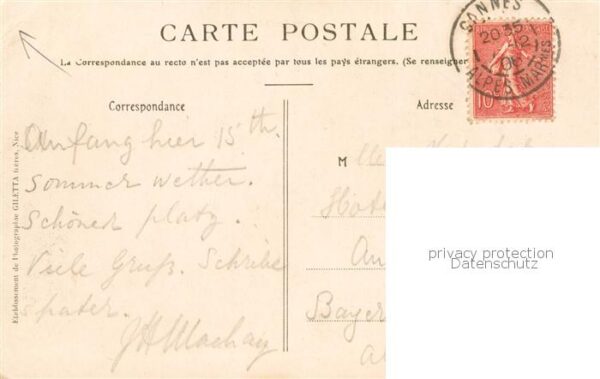 CARTE POSTALE
La Correspondance au recto n'est pas acceptée par tous les pays étrangers. (Se renseigner
CANNES
20 35
12
06
ALPES MARMES
10
Correspondance
Adresse
Anfang hier 15 th.
Sommer wether.
Schöner platz.
Viele Gruß. Schribe
pater.
M lle
Hote
An
Bayer
Etablissement de Photographie GILETTA frères, Nice
privacy protection
Datenschutz